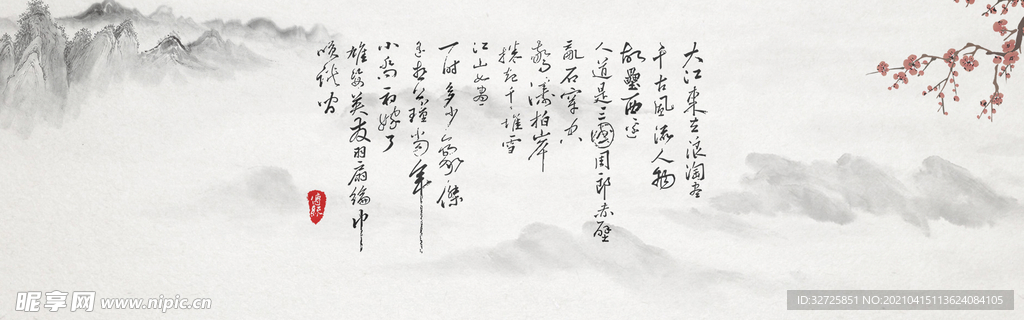 大江東去浪淘尽
千古風流人物
故壘西边
人道是三國周郎赤壁
亂石穿空
驚濤拍岸
捲起千堆雪
江山如畫
一时多少豪傑
遙想公瑾當年
小喬初嫁了
雄姿英发羽扇綸巾
昵享网 www.nipic.cn
ID:32725851 NO:20210415113624084105